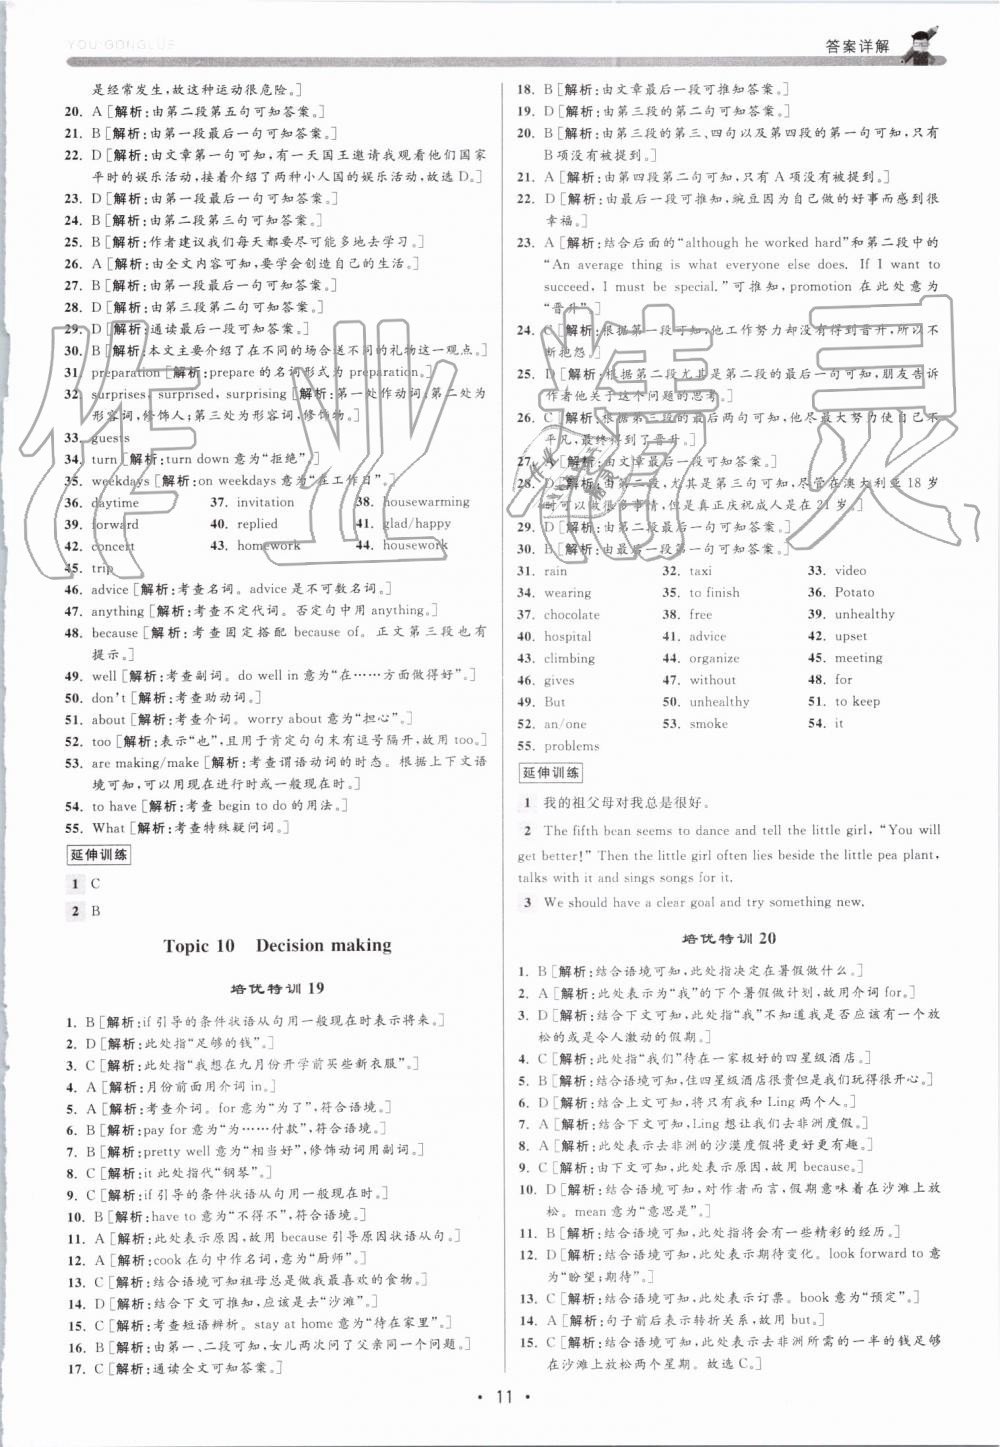 YOU GONGLUE
答案详解
是经常发生,故这种运动很危险。]
20. A [解析:由第二段第五句可知答案。]
21. B [解析:由第一段最后一句可知答案。]
22. D [解析:由文章第一句可知,有一天国王邀请我观看他们国家
平时的娱乐活动,接着介绍了两种小人国的娱乐活动,故选 D。]
23. D [解析:由第一段最后一句可知答案。]
24. B [解析:由第二段第三句可知答案。]
25. B [解析:作者建议我们每天都要尽可能多地去学习。]
26. A [解析:由全文内容可知,要学会创造自己的生活。]
27. B [解析:由第一段最后一句可知答案。]
28. D [解析:由第三段第二句可知答案。]
29. D [解析:通读最后一段可知答案。]
30. B [解析:本文主要介绍了在不同的场合送不同的礼物这一观点。]
31. preparation [解析:prepare 的名词形式为 preparation。]
32. surprises, surprised, surprising [解析:第一处作动词;第二处为
形容词,修饰人;第三处为形容词,修饰物。]
33. guests
34. turn [解析:turn down 意为“拒绝”。]
35. weekdays [解析:on weekdays 意为“在工作日”。]
36. daytime 37. invitation 38. housewarming
39. forward 40. replied 41. glad/happy
42. concert 43. homework 44. housework
45. trip
46. advice [解析:考查名词。advice 是不可数名词。]
47. anything [解析:考查不定代词。否定句中用 anything。]
48. because [解析:考查固定搭配 because of。正文第三段也有
提示。]
49. well [解析:考查副词。do well in 意为“在……方面做得好”。]
50. don't [解析:考查助动词。]
51. about [解析:考查介词。worry about 意为“担心”。]
52. too [解析:表示“也”,且用于肯定句句末有逗号隔开,故用 too。]
53. are making/make [解析:考查谓语动词的时态。根据上下文语
境可知,可以用现在进行时或一般现在时。]
54. to have [解析:考查 begin to do 的用法。]
55. What [解析:考查特殊疑问词。]
延伸训练
1 C
2 B
Topic 10 Decision making
培优特训 19
1. B [解析:if 引导的条件状语从句用一般现在时表示将来。]
2. D [解析:此处指“足够的钱”。]
3. C [解析:此处指“我想在九月份开学前买些新衣服”。]
4. A [解析:月份前面用介词 in。]
5. A [解析:考查介词。for 意为“为了”,符合语境。]
6. B [解析:pay for 意为“为……付款”,符合语境。]
7. B [解析:pretty well 意为“相当好”,修饰动词用副词。]
8. C [解析:it 此处指代“钢琴”。]
9. C [解析:if 引导的条件状语从句用一般现在时。]
10. B [解析:have to 意为“不得不”,符合语境。]
11. A [解析:此处表示原因,故用 because 引导原因状语从句。]
12. A [解析:cook 在句中作名词,意为“厨师”。]
13. C [解析:结合语境可知祖母总是做我最喜欢的食物。]
14. D [解析:结合下文可推知,应该是去“沙滩”。]
15. C [解析:考查短语辨析。stay at home 意为“待在家里”。]
16. B [解析:由第一、二段可知,女儿两次问了父亲同一个问题。]
17. C [解析:通读全文可知答案。]
18. B [解析:由文章最后一段可推知答案。]
19. D [解析:由第三段的第二句可知答案。]
20. B [解析:由第三段的第三、四句以及第四段的第一句可知,只有
B 项没有被提到。]
21. A [解析:由第四段第二句可知,只有 A 项没有被提到。]
22. D [解析:由最后一段可推知,豌豆因为自己做的好事而感到很
幸福。]
23. A [解析:结合后面的“although he worked hard”和第二段中的
“An average thing is what everyone else does. If I want to
succeed, I must be special.”可推知,promotion 在此处意为
“晋升”。]
24. C [解析:根据第一段可知,他工作努力却没有得到晋升,所以不
断抱怨。]
25. D [解析:根据第二段尤其是第二段的最后一句可知,朋友告诉
作者他关于这个问题的思考。]
26. C [解析:根据第三段的最后两句可知,他尽最大努力使自己不
平凡,最终得到了晋升。]
27. A [解析:由文章最后一段可知答案。]
28. D [解析:由第二段,尤其是第三句可知,尽管在澳大利亚 18 岁
时可以做很多事情,但是真正庆祝成人是在 21 岁。]
29. D [解析:由第二段最后一句可知答案。]
30. B [解析:由最后一段最后一句可知答案。]
31. rain 32. taxi 33. video
34. wearing 35. to finish 36. Potato
37. chocolate 38. free 39. unhealthy
40. hospital 41. advice 42. upset
43. climbing 44. organize 45. meeting
46. gives 47. without 48. for
49. But 50. unhealthy 51. to keep
52. an/one 53. smoke 54. it
55. problems
延伸训练
1 我的祖父母对我总是很好。
2 The fifth bean seems to dance and tell the little girl, “You will
get better!” Then the little girl often lies beside the little pea plant,
talks with it and sings songs for it.
3 We should have a clear goal and try something new.
培优特训 20
1. B [解析:结合语境可知,此处指决定在暑假做什么。]
2. A [解析:此处表示为“我”的下个暑假做计划,故用介词 for。]
3. D [解析:结合下文可知,此处指“我”不知道我是否应该有一个放
松的或是令人激动的假期。]
4. C [解析:结合语境可知,此处指“我们”待在一家极好的四星级酒店。]
5. B [解析:结合语境可知,住四星级酒店很贵但是我们玩得很开心。]
6. D [解析:结合上文可知,将只有我和 Ling 两个人。]
7. A [解析:结合下文可知,Ling 想让我们去非洲度假。]
8. A [解析:此处表示去非洲的沙漠度假将更好更有趣。]
9. C [解析:由下文可知,此处表示原因,故用 because。]
10. D [解析:结合语境可知,对作者而言,假期意味着在沙滩上放
松。mean 意为“意思是”。]
11. B [解析:结合语境可知,此处指将会有一些精彩的经历。]
12. D [解析:结合语境可知,此处表示期待变化。look forward to 意
为“盼望;期待”。]
13. C [解析:结合语境可知,此处表示订票。book 意为“预定”。]
14. A [解析:句子前后表示转折关系,故用 but。]
15. C [解析:结合语境可知,此处表示去非洲所需的一半的钱足够
在沙滩上放松两个星期。故选 C。]
· 11 ·